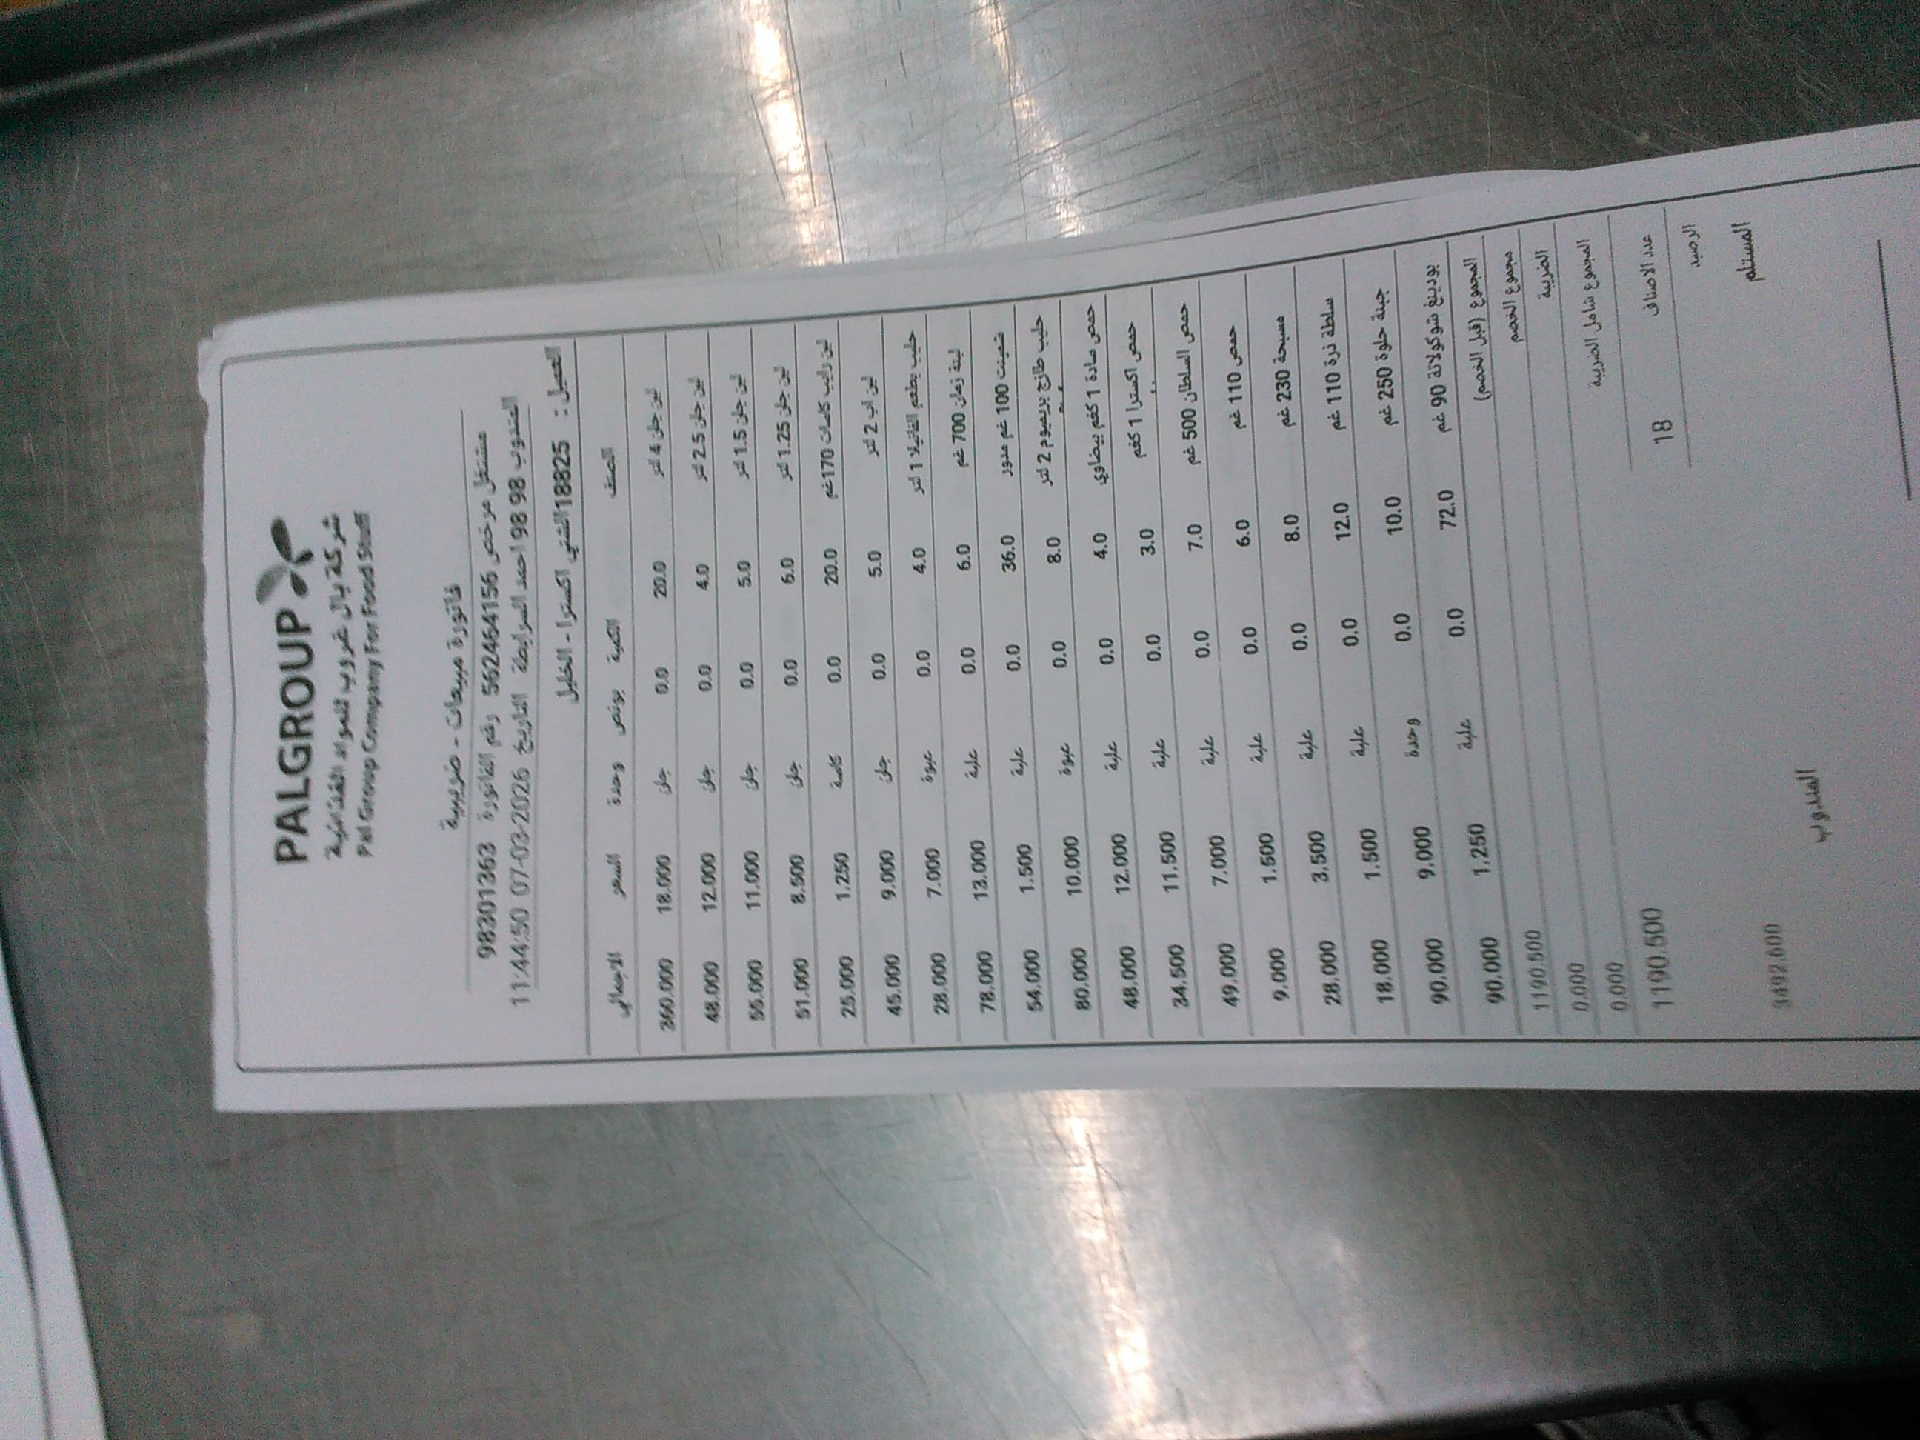 PALGROUP
شركة بال غروب للمواد الغذائية
Pal Group Company For Food Stuff
فاتورة مبيعات - ضريبية
مشتغل مرخص 562464156 رقم الفاتورة 98301363
المندوب 98 98 احمد السرابطة التاريخ 07-03-2026 11:44:50
العميل : 18825 الشني اكسترا - الخليل
الصنف الكمية بونص وحدة السعر الاجمالي
لبن جلن 4 لتر 20.0 0.0 جلن 18.000 360.000
لبن جلن 2.5 لتر 4.0 0.0 جلن 12.000 48.000
لبن جلن 1.5 لتر 5.0 0.0 جلن 11.000 55.000
لبن جلن 1.25 لتر 6.0 0.0 جلن 8.500 51.000
لبن رايب كاسات 170غم 20.0 0.0 كاسة 1.250 25.000
لبن اب 2 لتر 5.0 0.0 جلن 9.000 45.000
حليب بطعم الفانيلا 1 لتر 4.0 0.0 عبوة 7.000 28.000
لبنة زمان 700 غم 6.0 0.0 علبة 13.000 78.000
شمينت 100 غم مدور 36.0 0.0 علبة 1.500 54.000
حليب طازج بريميوم 2 لتر 8.0 0.0 عبوة 10.000 80.000
حمص سادة 1 كغم بيضاوي 4.0 0.0 علبة 12.000 48.000
حمص اكسترا 1 كغم 3.0 0.0 علبة 11.500 34.500
حمص السلطان 500 غم 7.0 0.0 علبة 7.000 49.000
حمص 110 غم 6.0 0.0 علبة 1.500 9.000
مسبحة 230 غم 8.0 0.0 علبة 3.500 28.000
سلطة ذرة 110 غم 12.0 0.0 علبة 1.500 18.000
جبنة حلوة 250 غم 10.0 0.0 وحدة 9.000 90.000
بودينغ شوكولاتة 90 غم 72.0 0.0 علبة 1.250 90.000
المجموع (قبل الخصم) 1190.500
مجموع الخصم 0.000
الضريبة 0.000
المجموع شامل الضريبة 1190.500
عدد الاصناف 18
الرصيد 3492.600
المستلم المندوب